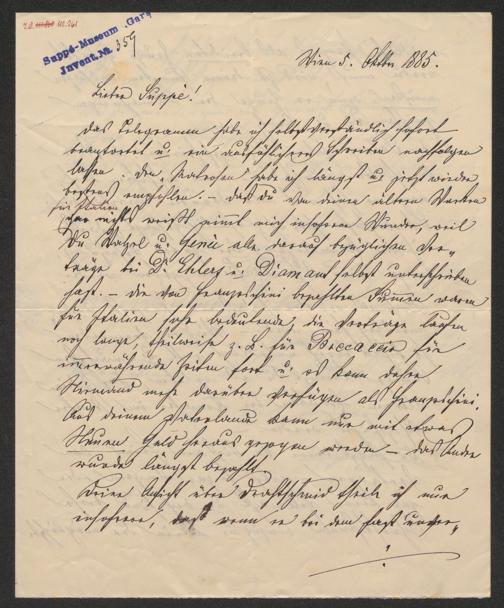 Suppé-Museum, Gars
Invent. № 359
Wien 5. Oktbr 1885.
Lieber Suppé!
Das Telegramm habe ich selbstverständlich sofort
beantwortet u. ein ausführliches Schreiben nachfolgen
lassen. Den „Matrosen" habe ich längst u. jetzt wieder
bestens empfohlen. – Daß Du von deinen ältern Werken
für Italien
gar nichts weißt nimmt mich insoferne Wunder, weil
Du Walzel u. Genée alle darauf bezüglichen Ver-
träge bei Dr. Ehlers u. Diamant selbst unterschrieben
hast. – Die von Franzeschini bezahlten Summen waren
für Italien sehr bedeutende, die Verträge laufen
noch lange, theilweise z. B. für Boccaccio für
immerwährende Zeiten fort u. es kann daher
Niemand mehr darüber verfügen als Franzeschini.
Aus deinem Vaterlande kann nur mit etwas
Neuem Geld heraus gezogen werden – das Andre
wurde längst bezahlt.
Deine Ansicht über theile ich nur
insoferne, daß wenn er bei dem fast unver-